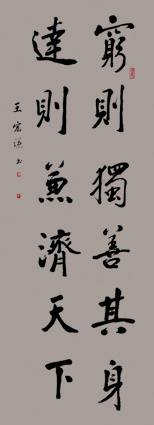 窮則獨善其身
達則兼濟天下
王宏源书